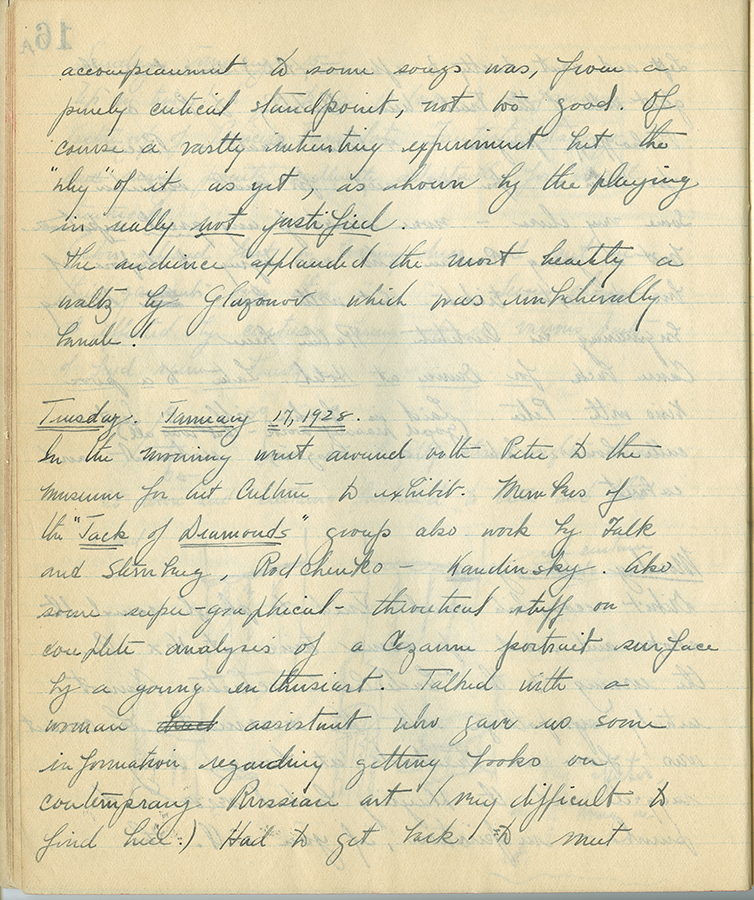 accompaniment to some songs was, from a
purely critical standpoint, not too good. Of
course a vastly interesting experiment but the
"why" of it as yet, as shown by the playing
is really not justified.
The audience applauded the most heartily a
waltz by Glazonov which was unbelievably
banale!
Tuesday. January 17, 1928.
In the morning went around with Peter to the
museum for art Culture to exhibit. Members of
the "Jack of Diamonds" group also work by Falk
and Sternberg, Rodchenko - Kandinsky. Also
some super-graphical-theoretical stuff on
complete analysis of a Cezanne portrait surface
by a young enthusiast. Talked with a
woman assistant who gave us some
information regarding getting books on
contemporary Russian art (very difficult to
find here.) Had to get back to meet